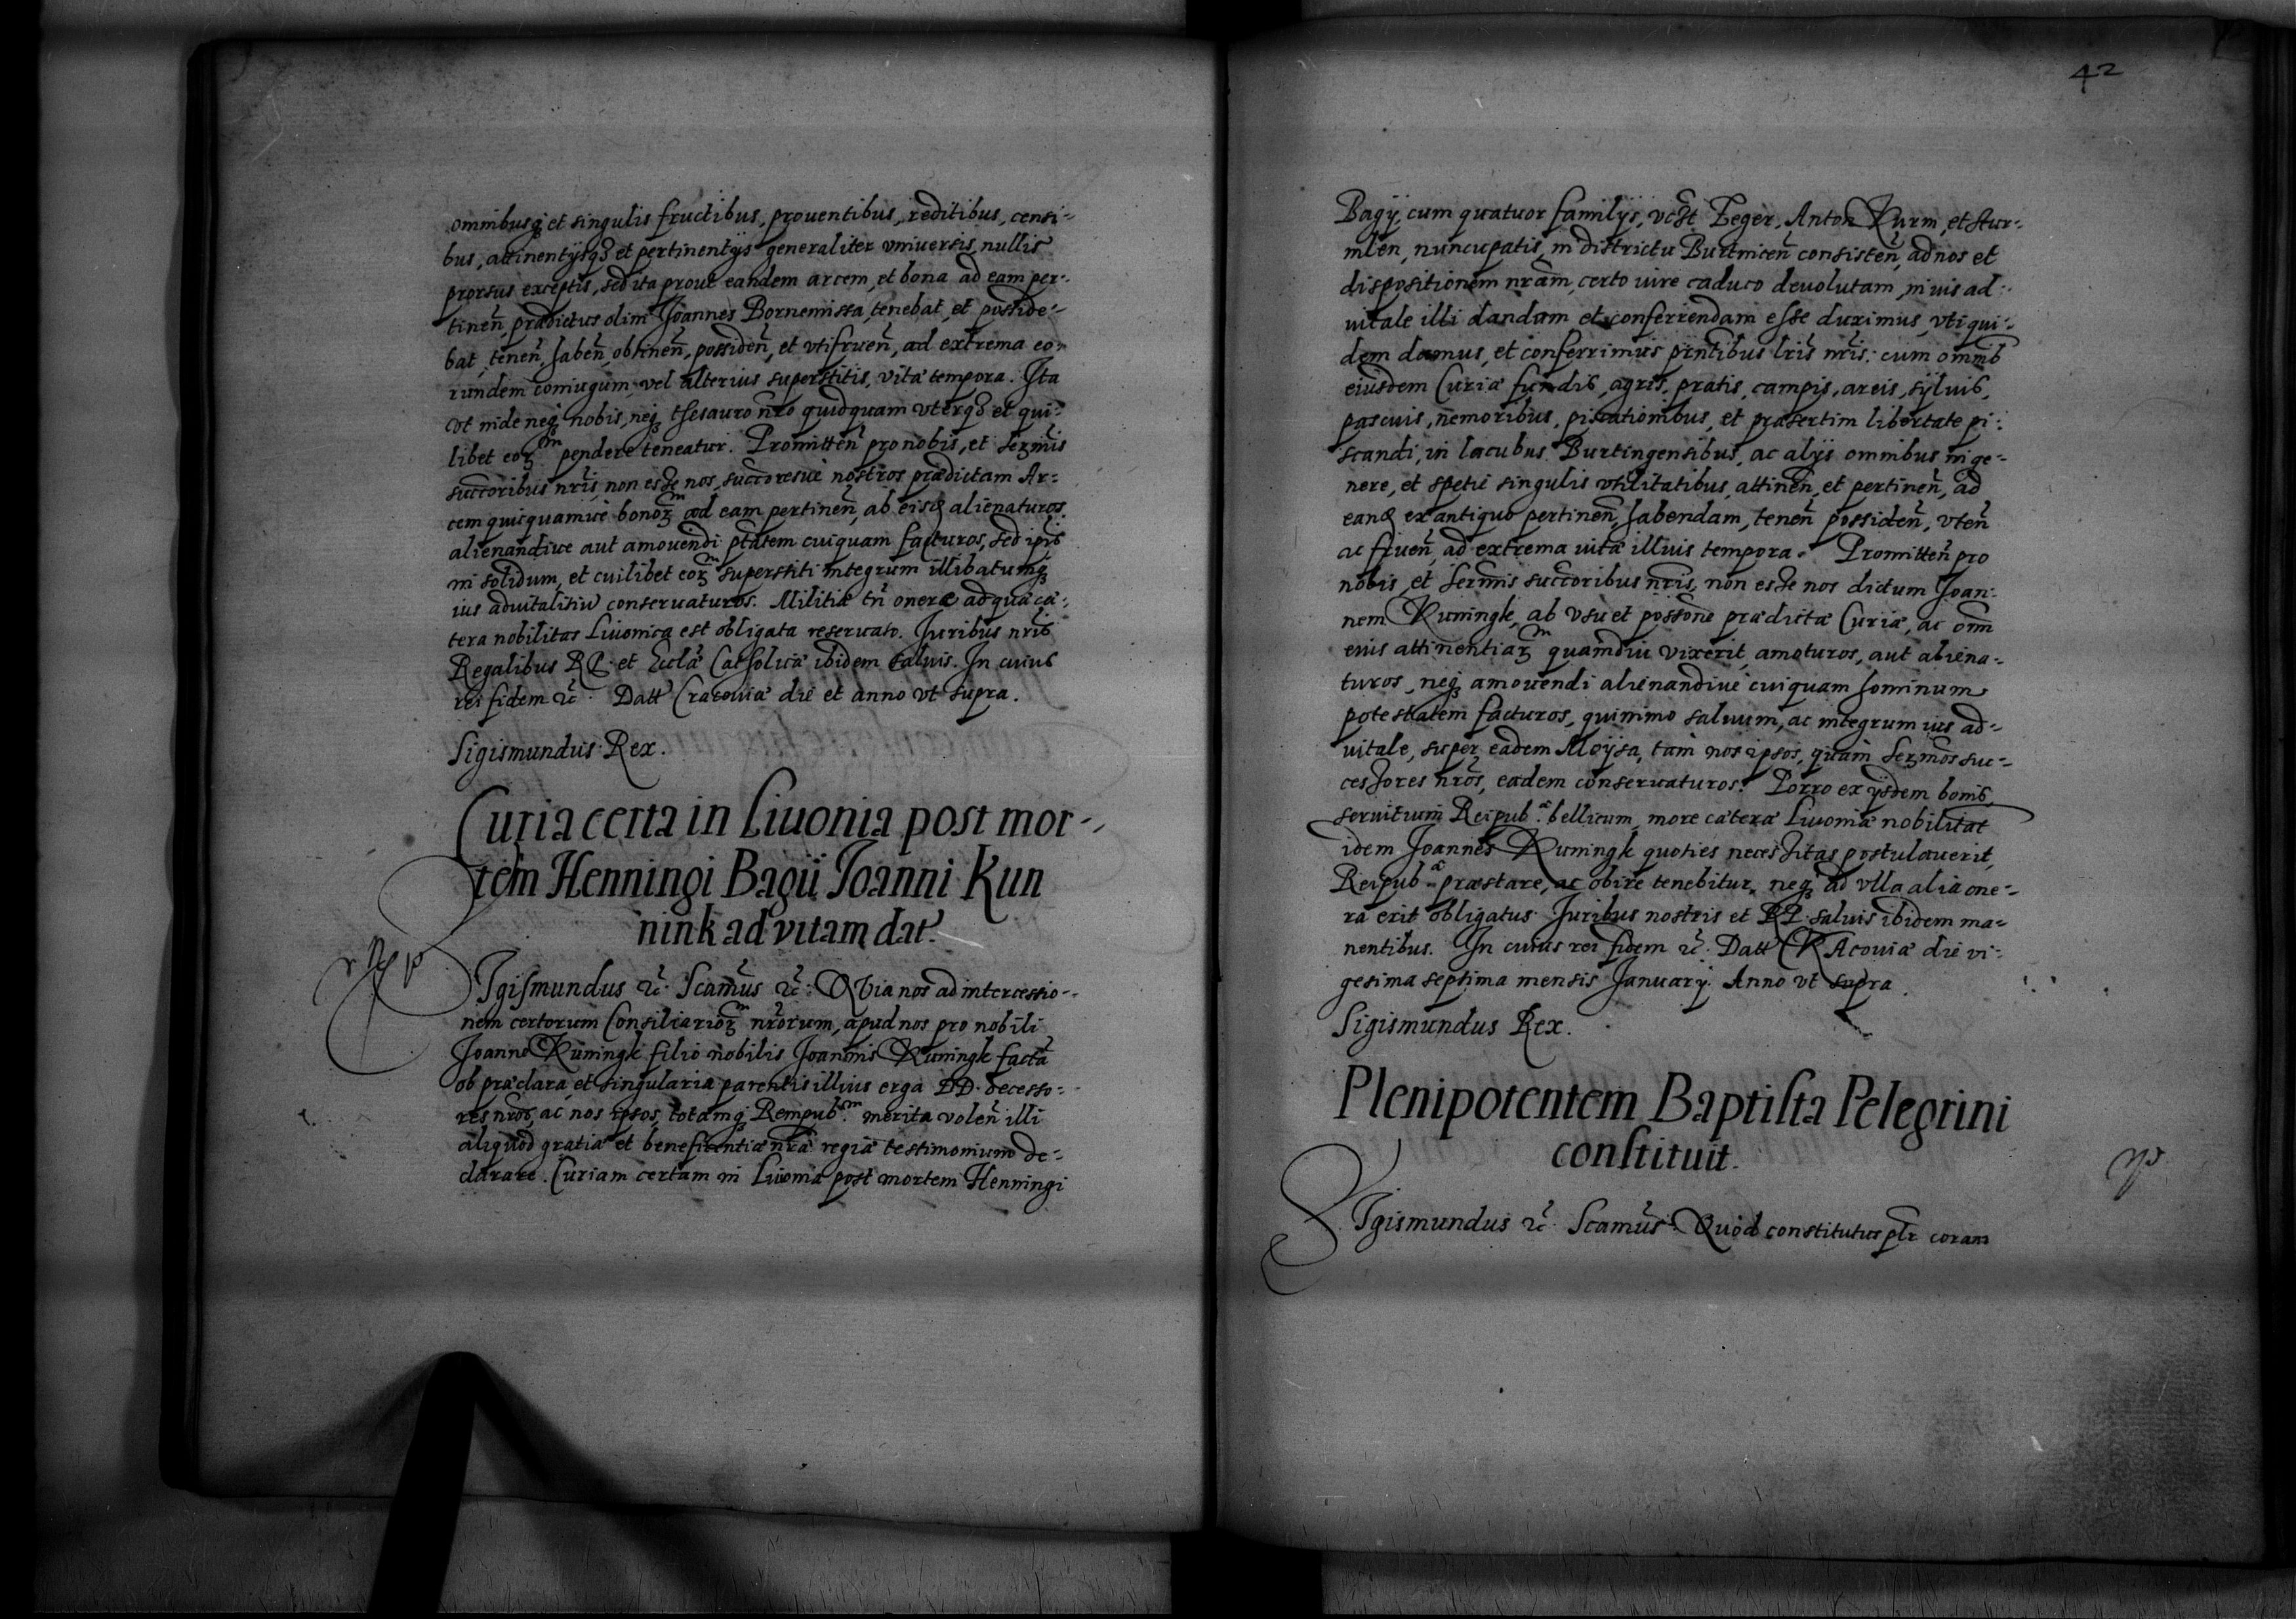 omnibusq₃ et singulis fructibus, prouentibus, reditibus, censi-
bus, attinentijsq₃ et pertinentijs generaliter vniuersis, nullis
prorsus exceptis, sed ita prout eandem arcem, et bona ad eam per-
tineñ, prædictus olim Joannes Bornemissa, tenebat, et posside-
bat, teneñ, habeñ, obtineñ, possideñ, et vtifrueñ, ad extrema eo-
rundem coniugum, vel alterius superstitis, vitæ tempora. Ita
vt inde neq₃ nobis, neq₃ thesauro nr̃o quidquam vterq₃ et qui-
libet eoꝝ pendere teneatur. Promitteñ pro nobis, et Serm̃is
succ̃oribus nr̃is, non esse nos, succ̃oresue nostros prædictam Ar-
cem quicquamue bonoꝝ ad eam pertineñ, ab eisd alienaturos,
alienandiue aut amouendi ptãtem cuiquam facturos, sed ipis
in solidum, et cuilibet eoꝝ superstiti integrum illibatumq₃
ius aduitalitiũ conseruaturos. Militiæ tñ onere ad quæ cæ-
tera nobilitas Liuonica est obligata reseruato. Juribus nr̃is
Regalibus RP. et Eccl̃æ Catholicæ ibidem saluis. In cuius
rei fidem ꝛc̃. Datt Cracouiæ die et anno vt supra.
Sigismundus Rex.
Curia certa in Liuonia post mor-
tem Henningi Bagii Joanni Kun
nink ad vitam dat.
SIgismundus ꝛc̃. Scamũs ꝛc̃. QVia nos ad intercessio-
nem certorum Consiliarioꝝ nr̃orum, apud nos pro nobili
Joanne Kuningk filio nobilis Joannis Kuningk factã
ob præclara, et singularia parentis illius erga DD. decesso-
res nr̃os, ac nos ipsos, totamq₃ Rempub.ᵃᵐ merita voleñ illi
aliquod gratiæ et beneficentiæ nr̃æ regiæ testimonium de-
clarare. Curiam certam in Liuonia post mortem Henningi
42
Bagij, cum quatuor familijs, vcz̃t Zeger, Anton Kurm, et Stur-
mlen, nuncupatis, in districtu Burtniceñ consisteñ, ad nos et
dispositionem nr̃am, certo iure caduco deuolutam, in ius ad-
uitale illi dandam et conferrendam esse duximus, vti qui-
dem damus, et conferrimus pr̃ntibus lr̃is nr̃is: cum omnib
eiusdem Curiæ fundis, agris, pratis, campis, areis, syluis,
pascuis, nemoribus, piscationibus, et præsertim libertate pi-
scandi, in lacubus Burtingensibus, ac alijs omnibus in ge-
nere, et spetie singulis vtilitatibus, attineñ, et pertineñ, ad
eand ex antiquo pertineñ, habendam, teneñ possideñ, vteñ
ac frueñ, ad extrema uitæ illius tempora. Promitteñ pro
nobis, et Serm̃is succ̃oribus nr̃is, non esse nos dictum Joan-
nem Kuningk, ab vsu et poss̃one prædictæ Curiæ, ac om̃i
eius attinentiaꝝ quamdiu vixerit, amoturos, aut aliena-
turos, neq₃ amouendi alienandiue cuiquam hominum
potestatem facturos, quinimo saluum, ac integrum ius ad-
uitale, super eadem Moysa, tam nos ipsos, quam Serm̃os suc-
cessores nr̃os, eadem conseruaturos. Porro ex ijsdem bonis,
seruitium Reipub.ᵃᵉ bellicum, more cæteræ Liuoniæ nobilitat
idem Joannes Kuningk quoties necessitas postulauerit,
Reipub.ᵃᵉ præstare, ac obire tenebitur, neq₃ ad vlla alia one-
ra erit obligatus. Juribus nostris et RP. saluis ibidem ma-
nentibus. In cuius rei fidem ꝛc̃. Datt CRAcouiæ die vi-
gesima septima mensis Januarij. Anno vt supra
Sigismundus Rex.
Plenipotentem Baptista Pelegrini
constituit.
SIgismundus ꝛc̃. Scamũs. Quod constitutus pl̃r coram